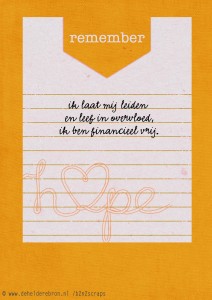 remember
ik laat mij leiden
en leef in overvloed,
ik ben financieel vrij.
hope
© www.dehelderebron.nl /b2n2scraps